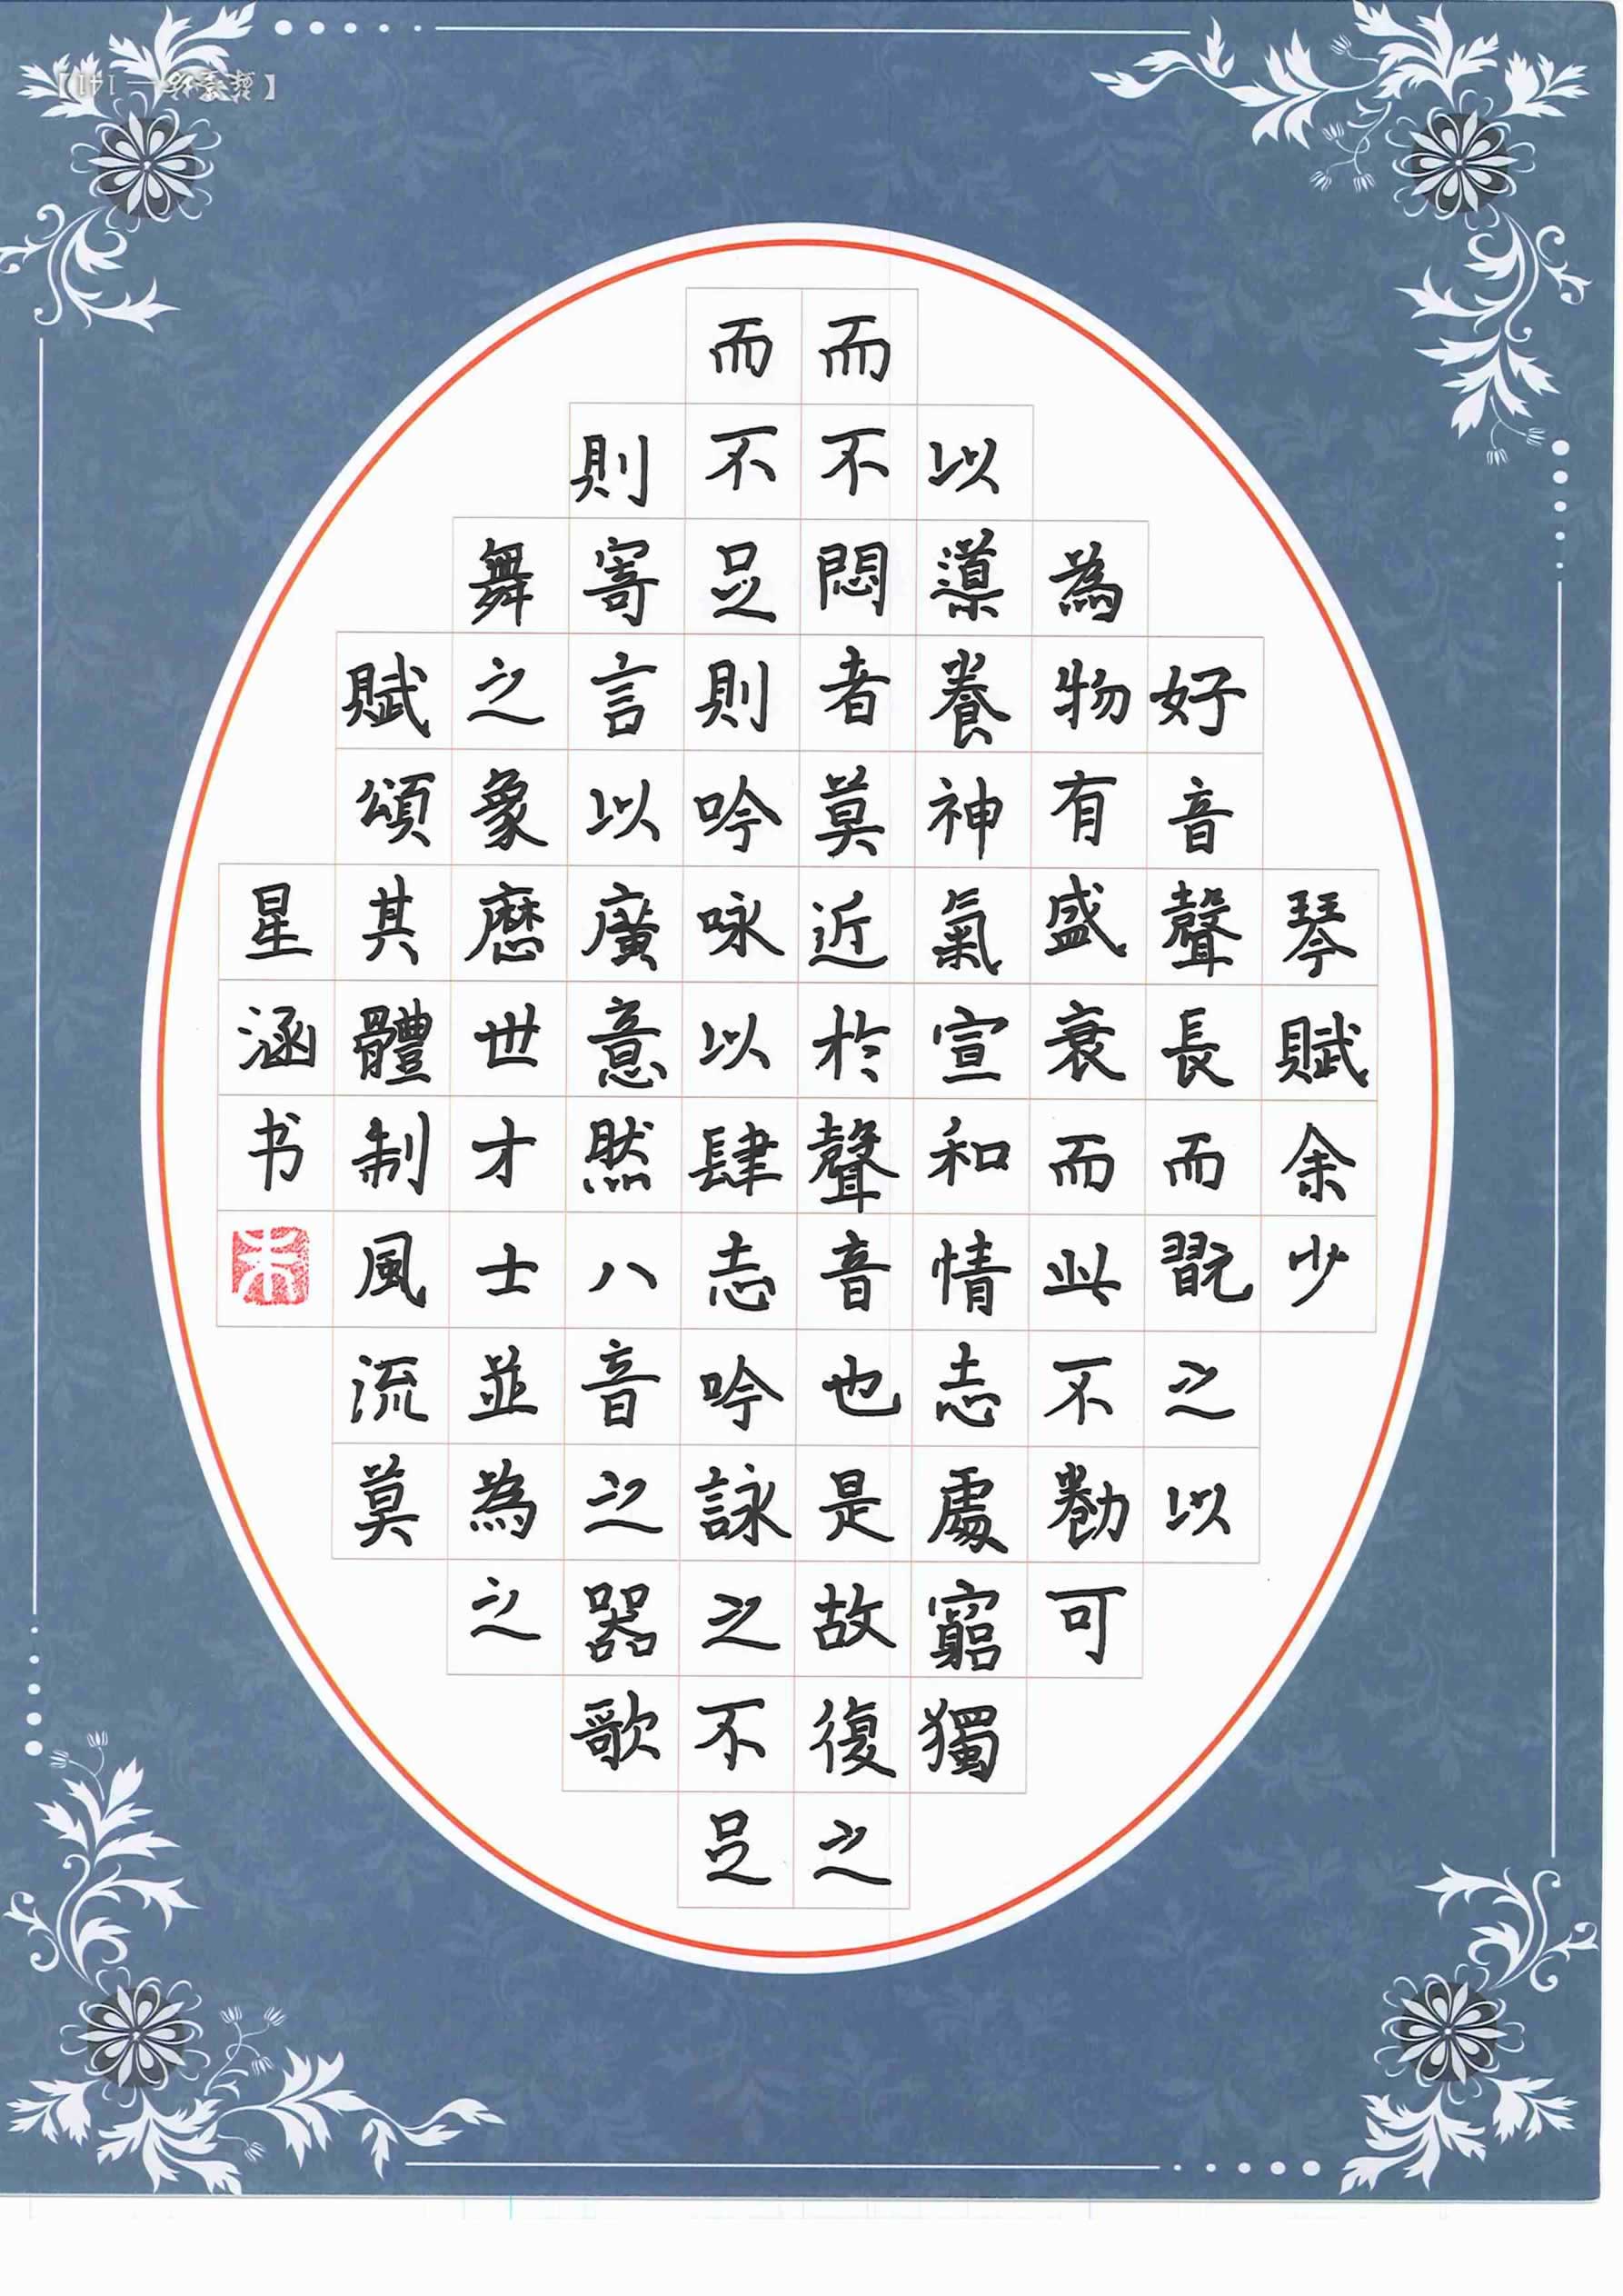 琴賦余少
好音聲長而翫之以
為物有盛衰而此不勌可
以導養神氣宣和情志處竆獨
而不悶者莫近於聲音也是故復之
而不足則吟咏以肆志吟詠之不足
則寄言以廣意然八音之器歌
舞之象歷世才士並為之
賦頌其體制風流莫
星涵书